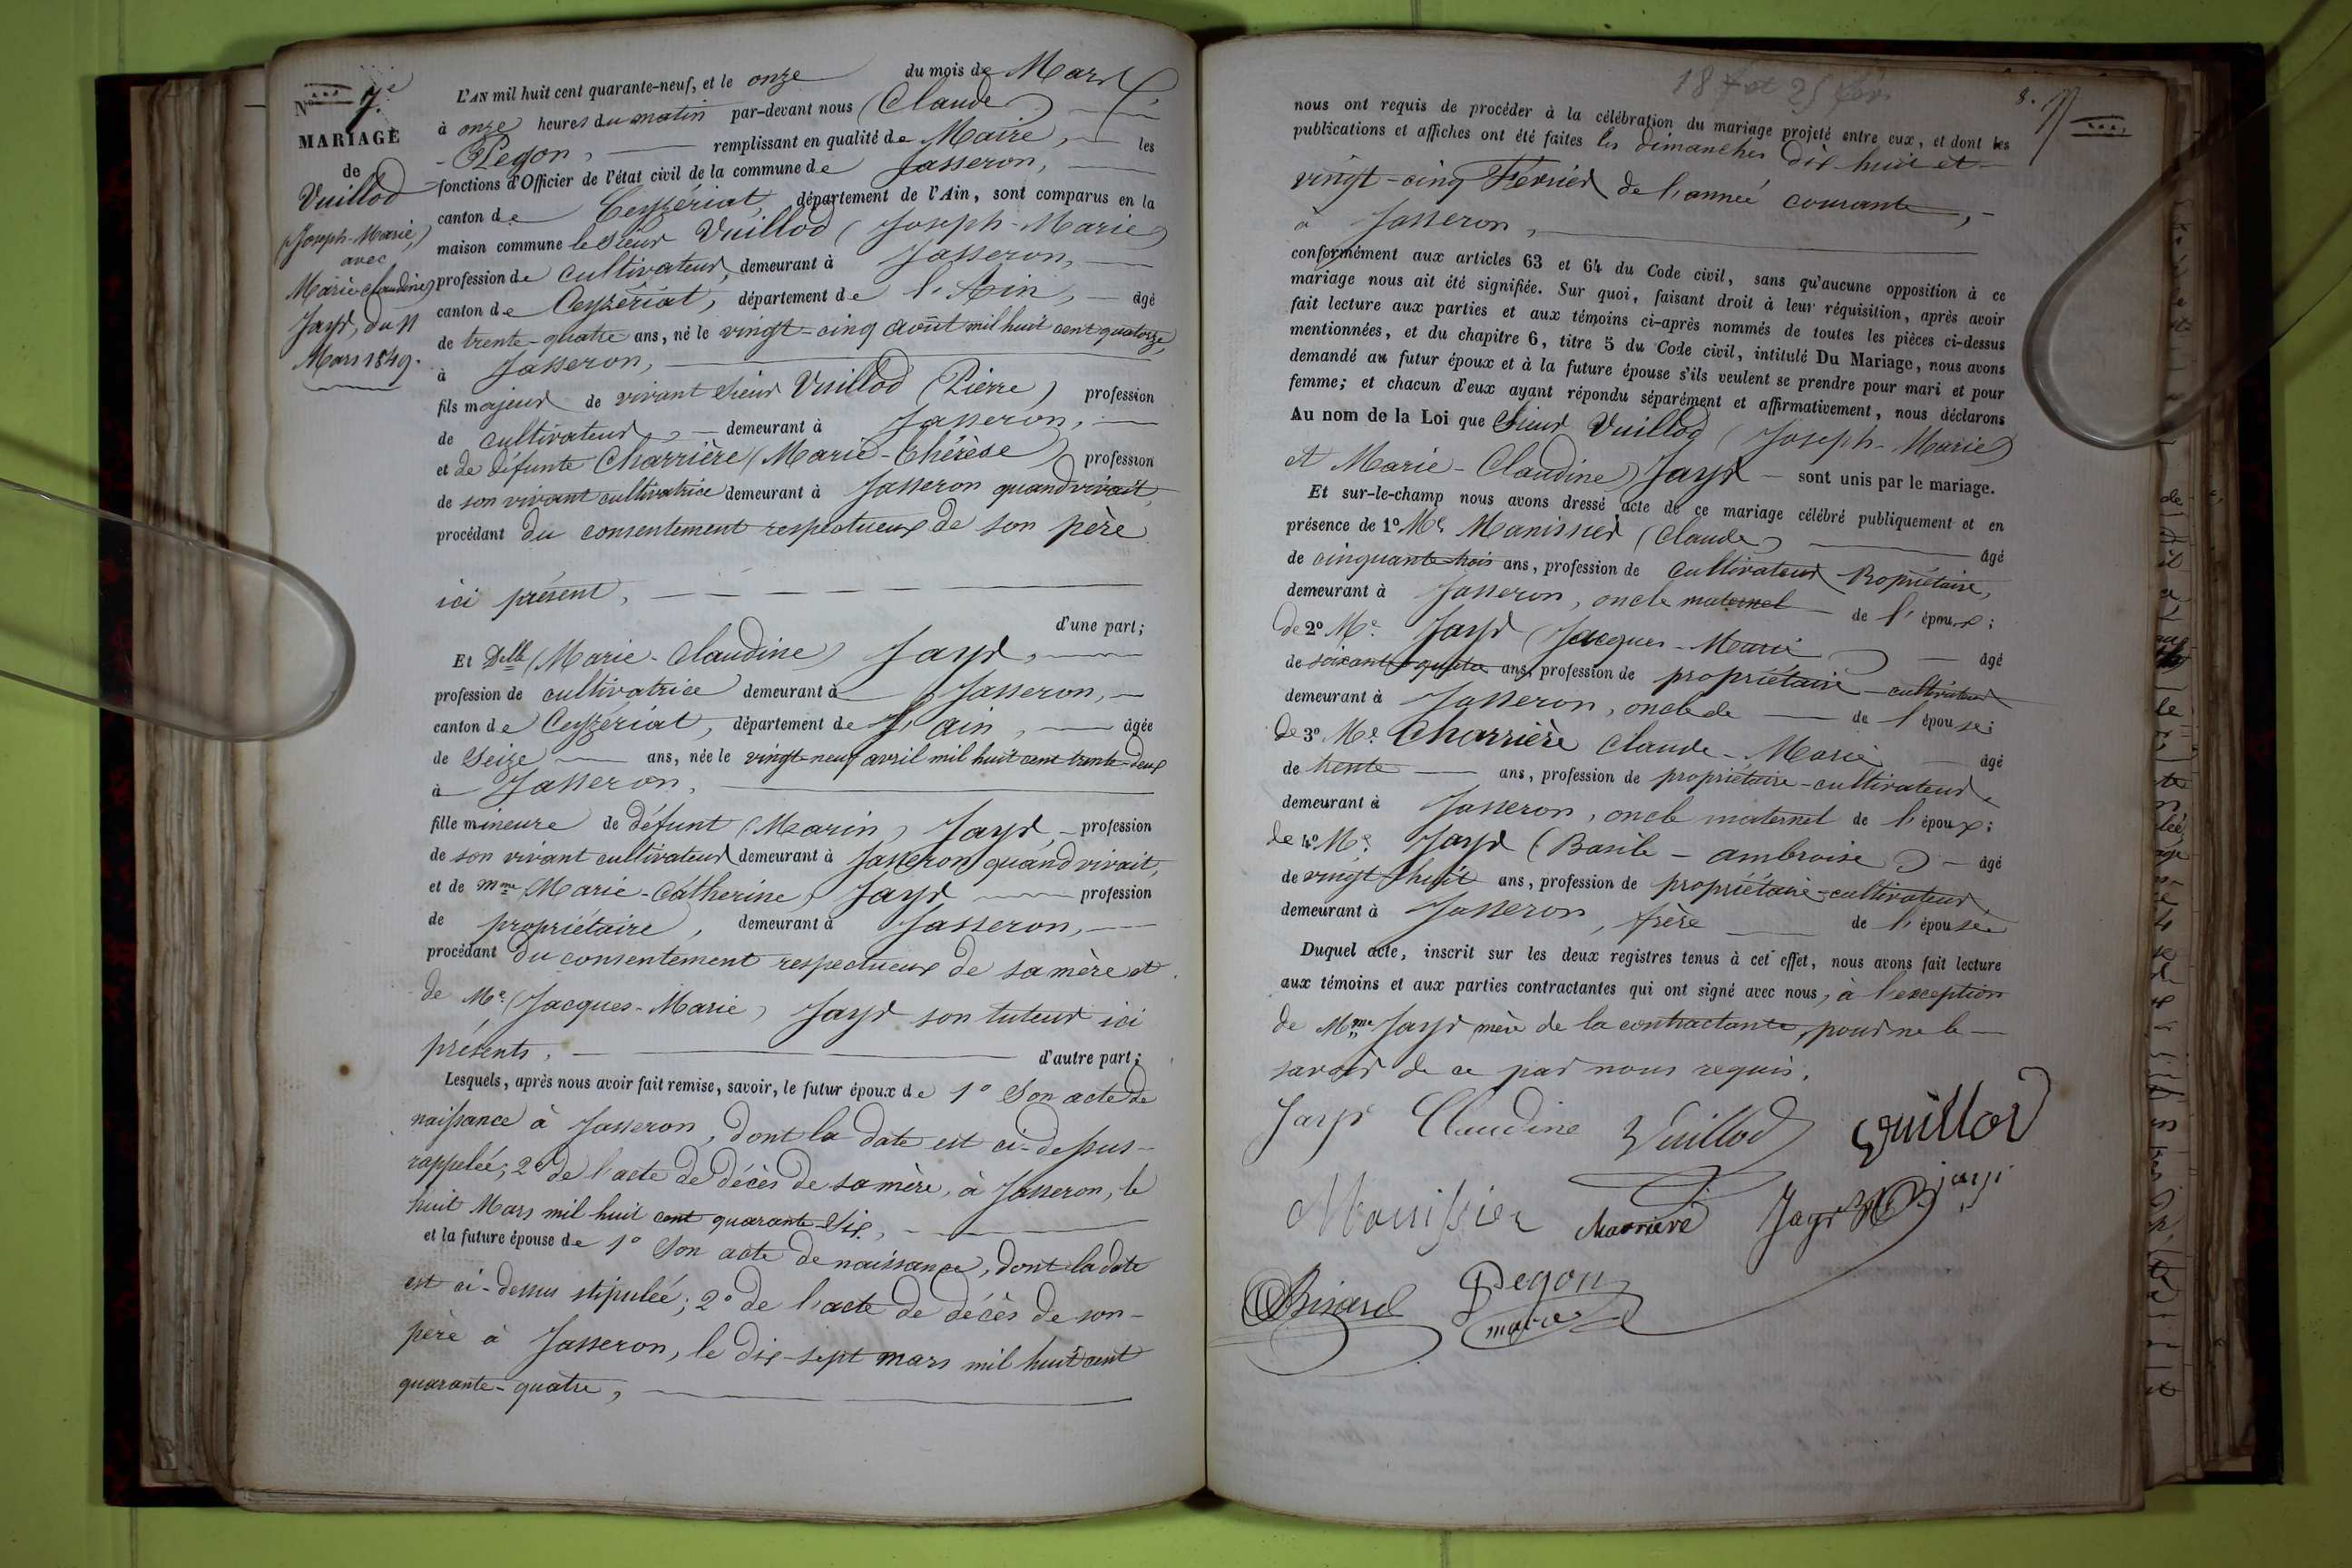 N° 7.e
MARIAGE
de
Vuillod
(Joseph-Marie)
avec
Marie-Claudine
Jayr, du 11
Mars 1849.
L'AN mil huit cent quarante-neuf, et le onze du mois de Mars
à onze heures du matin par-devant nous (Claude)
Pegon, remplissant en qualité de Maire, les
fonctions d'Officier de l'état civil de la commune de Jasseron,
canton de Ceyzériat, département de l'Ain, sont comparus en la
maison commune le sieur Vuillod (Joseph-Marie)
profession de cultivateur, demeurant à Jasseron,
canton de Ceyzériat, département de l'Ain, âgé
de trente-quatre ans, né le vingt-cinq août mil huit cent quatorze,
à Jasseron,
fils majeur de vivant sieur Vuillod (Pierre) profession
de cultivateur, demeurant à Jasseron,
et de défunte Charrière (Marie-Thérèse) profession
de son vivant cultivatrice demeurant à Jasseron quand vivait,
procédant du consentement respectueux de son père
ici présent,
d'une part;
Et Delle (Marie-Claudine) Jayr,
profession de cultivatrice demeurant à Jasseron,
canton de Ceyzériat, département de l'ain, âgée
de Seize ans, née le vingt-neuf avril mil huit cent trente-deux
à Jasseron,
fille mineure de défunt (Marin) Jayr, profession
de son vivant cultivateur demeurant à Jasseron quand vivait,
et de mme (Marie-Catherine) Jayr profession
de propriétaire, demeurant à Jasseron,
procédant du consentement respectueux de sa mère et
de Mr. (Jacques-Marie) Jayr son tuteur ici
présents, d'autre part;
Lesquels, après nous avoir fait remise, savoir, le futur époux de 1° Son acte de
naissance à Jasseron, dont la date est ci-dessus
rappelée; 2° de l'acte de décès de sa mère, à Jasseron, le
huit Mars mil huit cent quarante-six,
et la future épouse de 1° Son acte de naissance, dont la date
est ci-dessus stipulée; 2° de l'acte de décès de son
père à Jasseron, le dix-sept mars mil huit cent
quarante-quatre,
18 et 25 fév.
8.
nous ont requis de procéder à la célébration du mariage projeté entre eux, et dont les
publications et affiches ont été faites les dimanches dix huit et
vingt-cinq Février de l'année courante,
à Jasseron,
conformément aux articles 63 et 64 du Code civil, sans qu'aucune opposition à ce
mariage nous ait été signifiée. Sur quoi, faisant droit à leur réquisition, après avoir
fait lecture aux parties et aux témoins ci-après nommés de toutes les pièces ci-dessus
mentionnées, et du chapitre 6, titre 5 du Code civil, intitulé Du Mariage, nous avons
demandé au futur époux et à la future épouse s'ils veulent se prendre pour mari et pour
femme; et chacun d'eux ayant répondu séparément et affirmativement, nous déclarons
Au nom de la Loi que Sieur Vuillod (Joseph-Marie)
et Marie-Claudine) Jayr sont unis par le mariage.
Et sur-le-champ nous avons dressé acte de ce mariage célébré publiquement et en
présence de 1° Mr. Manissier (Claude) âgé
de cinquante-trois ans, profession de cultivateur Propriétaire,
demeurant à Jasseron, oncle maternel de l'époux;
de 2° Mr. Jayr (Jacques-Marie) âgé
de soixante-quatre ans, profession de propriétaire-cultivateur
demeurant à Jasseron, oncle de de l'épouse;
de 3° Mr. Charrière Claude-Marie âgé
de trente ans, profession de propriétaire-cultivateur
demeurant à Jasseron, oncle maternel de l'époux;
de 4° Mr. Jayr (Basile-ambroise) âgé
de vingt-huit ans, profession de propriétaire-cultivateur,
demeurant à Jasseron, frère de l'épousée
Duquel acte, inscrit sur les deux registres tenus à cet effet, nous avons fait lecture
aux témoins et aux parties contractantes qui ont signé avec nous, à l'exception
de Mme Jayr mère de la contractante, pour ne le
savoir de ce par nous requis.
Jayr Claudine Vuillod Vuillod
Manissier charriere Jayr jayr
Pegon
maire